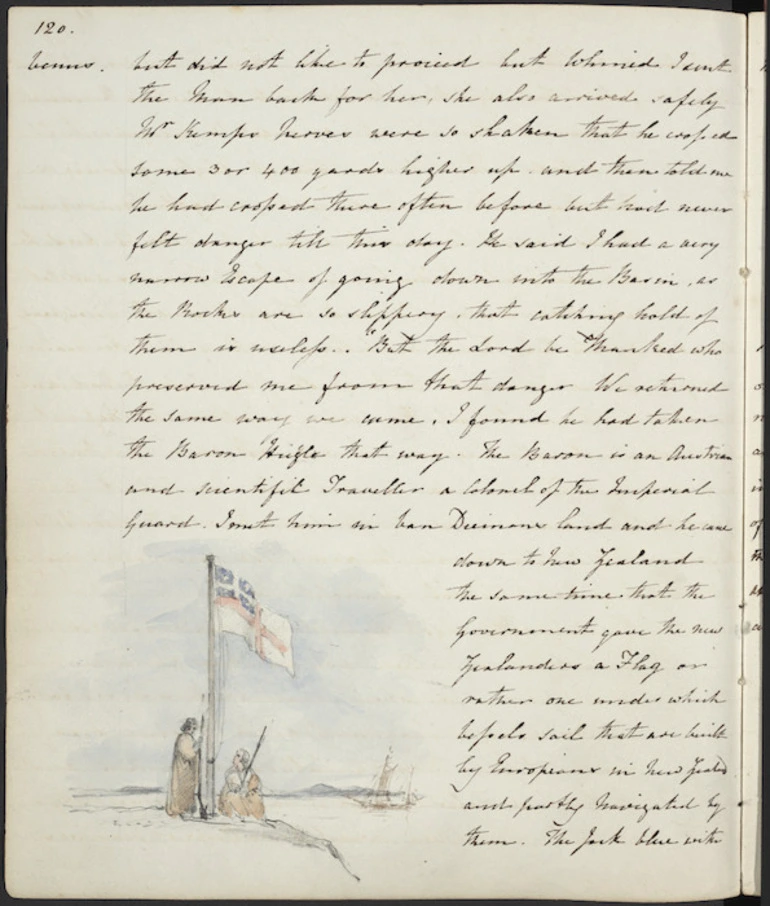 120.
Venus. but did not like to proceed but Whined I sent
the Man back for her, she also arrived safely
Mr Kemps Nerves were so shaken that he crossed
some 3 or 400 yards higher up. and then told me
he had crossed there often before but had never
felt danger till this day. He said I had a very
narrow Escape of going down into the Basin, as
the Rocks are so slippery that catching hold of
them is useless. But the Lord be Thanked who
preserved me from that danger We returned
the same way we came. I found he had taken
the Baron Hugle that way. The Baron is an Austrian
and scientific Traveller a Colonel of the Imperial
Guard. I met him in Van Diemans land and he came
down to New Zealand
the same time that the
Government gave the new
Zealanders a Flag or
rather one under which
Vessels sail that are built
by Europians in New Zeald
and partly Navigated by
them. The Jack blue with